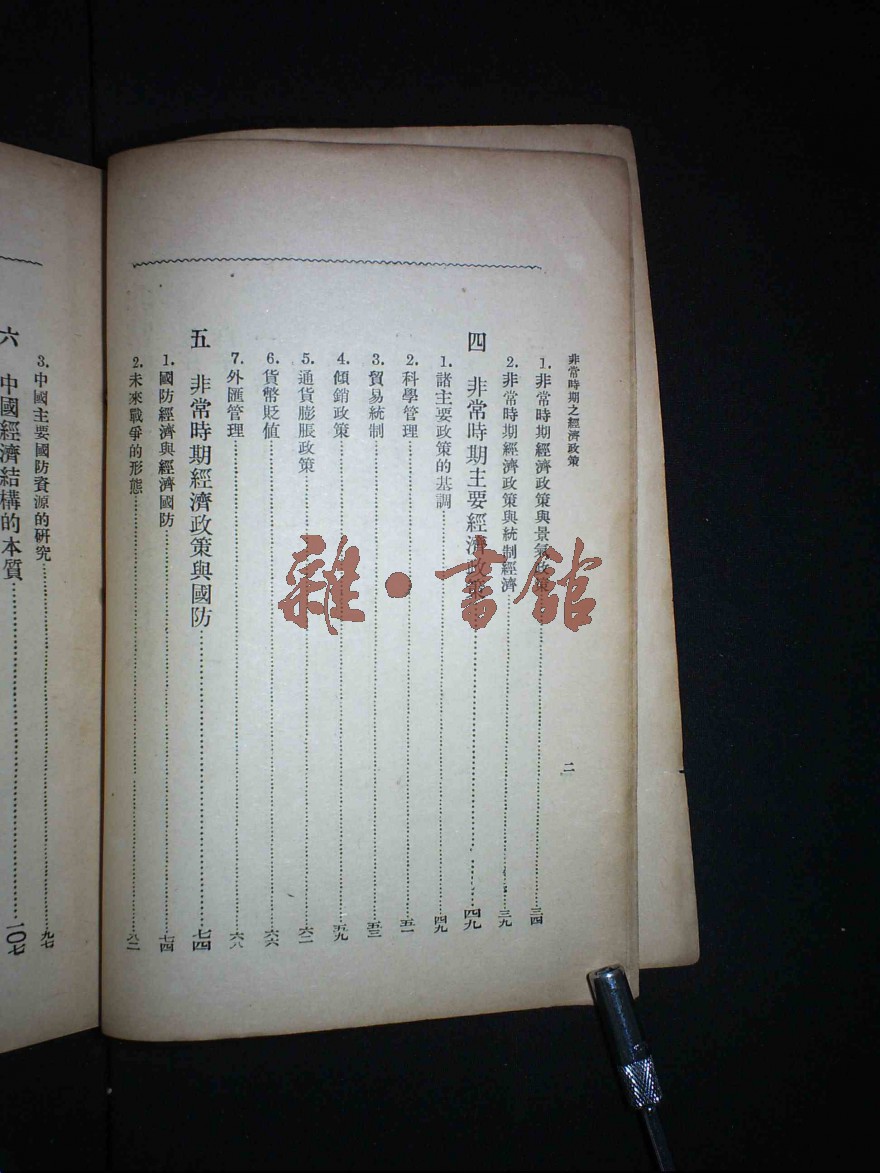 非常時期之經濟政策
二
1. 非常時期經濟政策與景氣政策……三四
2. 非常時期經濟政策與統制經濟……三九
四 非常時期主要經濟政策……四九
1. 諸主要政策的基調……四九
2. 科學管理……五一
3. 貿易統制……五三
4. 傾銷政策……五九
5. 通貨膨脹政策……六二
6. 貨幣貶值……六六
7. 外匯管理……六八
五 非常時期經濟政策與國防……七四
1. 國防經濟與經濟國防……七四
2. 未來戰爭的形態……八二
3. 中國主要國防資源的研究……九七
六 中國經濟結構的本質……一〇七
雜·書館